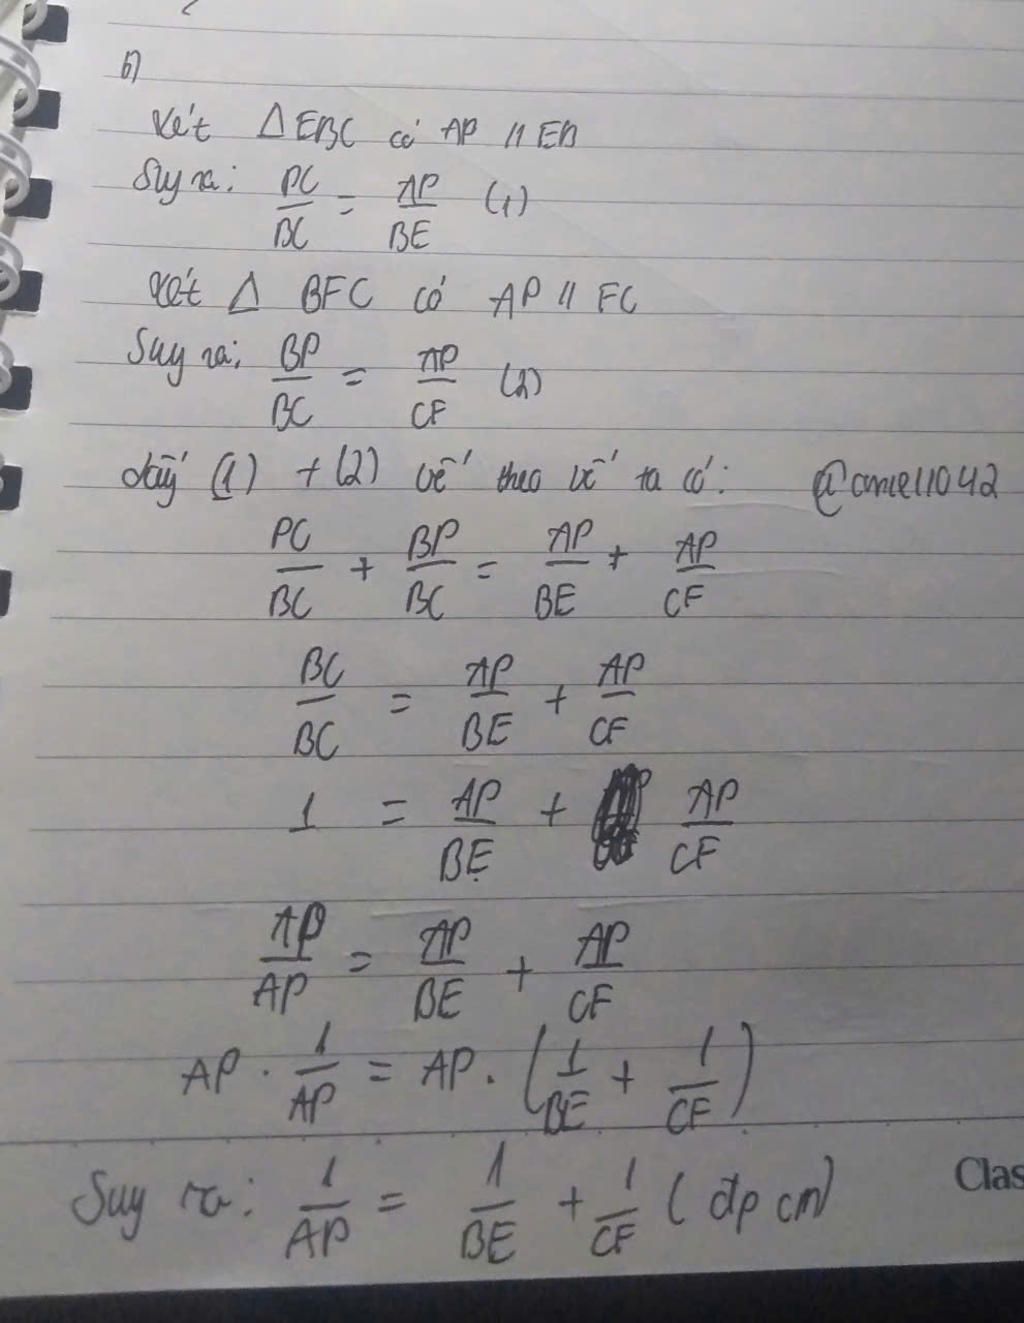 b)
Xét Δ EBC có AP // EB
Suy ra: PC/BC = AP/BE (1)
Xét Δ BFC có AP // FC
Suy ra: BP/BC = AP/CF (2)
Lấy (1) + (2) vế theo vế ta có: @amel11042
PC/BC + BP/BC = AP/BE + AP/CF
BC/BC = AP/BE + AP/CF
1 = AP/BE + AP/CF
AP/AP = AP/BE + AP/CF
AP . 1/AP = AP . (1/BE + 1/CF)
Suy ra: 1/AP = 1/BE + 1/CF (đpcm)
Clas